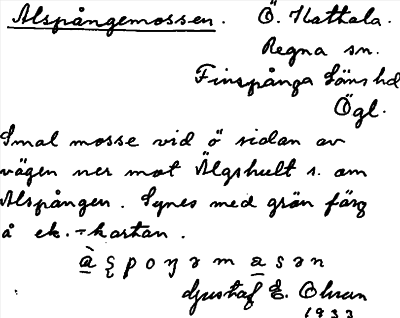 Alspångemossen. Ö. Hattala.
Regna sn.
Finspånga läns hd
Ögl.
Smal mosse vid ö sidan av
vägen ner mot Älgshult s. om
Alspången. Synes med grön färg
å ek.-kartan.
Gustaf E. Olsson
1933